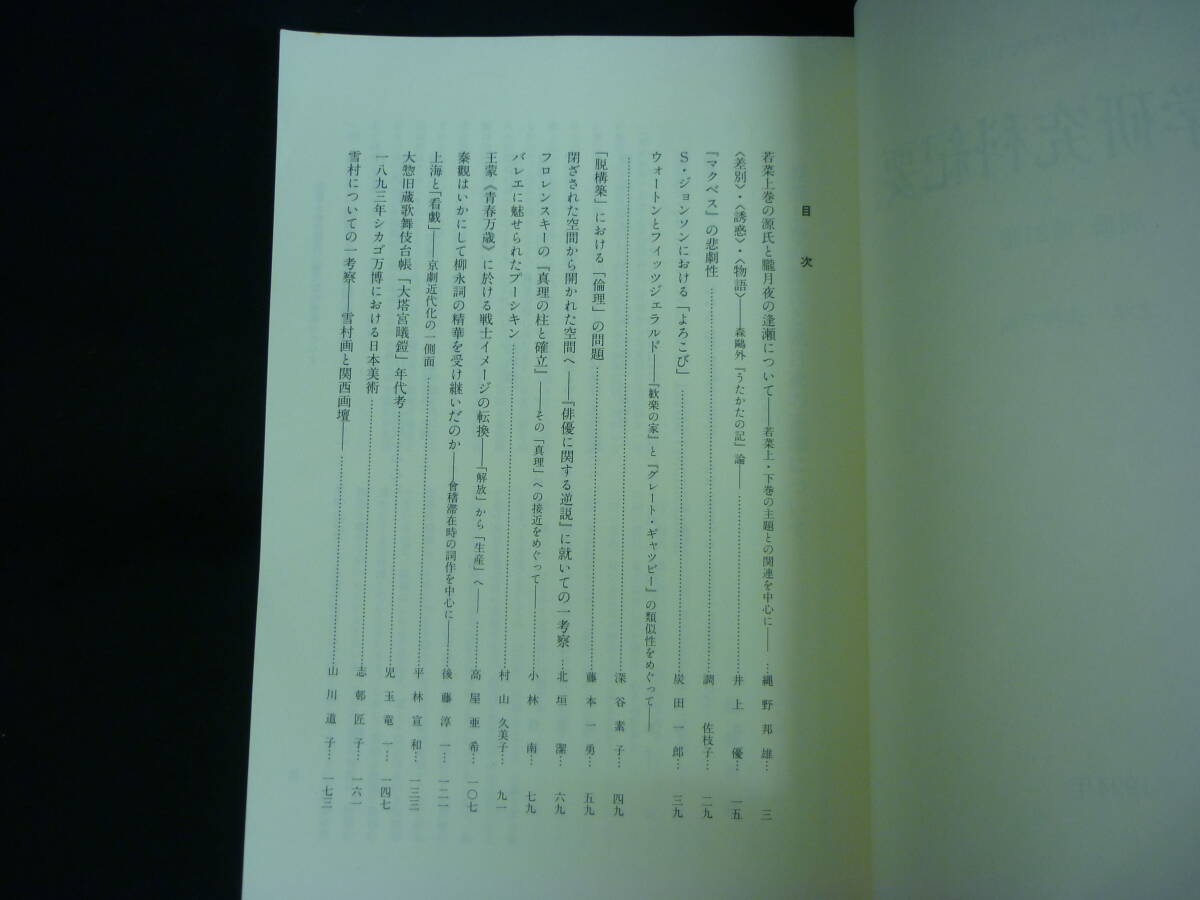 目次
若菜上巻の源氏と朧月夜の逢瀬について――若菜上・下巻の主題との関連を中心に――…縄野邦雄… 三
〈差別〉・〈誘惑〉・〈物語〉――森鷗外『うたかたの記』論――…井上優… 一五
『マクベス』の悲劇性…調佐枝子… 二九
S・ジョンソンにおける「よろこび」…炭田一郎… 三九
ウォートンとフィッツジェラルド――『歓楽の家』と『グレート・ギャツビー』の類似性をめぐって――
…深谷素子… 四九
「脱構築」における「倫理」の問題…藤本一勇… 五九
閉ざされた空間から開かれた空間へ――『俳優に関する逆説』に就いての一考察…北垣潔… 六九
フロレンスキーの『真理の柱と確立』――その「真理」への接近をめぐって――…小林南… 七九
バレエに魅せられたプーシキン…村山久美子… 九一
王蒙《青春万歳》に於ける戦士イメージの転換――「解放」から「生産」へ――…高屋亜希… 一〇七
秦觀はいかにして柳永詞の精華を受け継いだのか――會稽滞在時の詞作を中心に――…後藤淳一… 一二一
上海と「看戯」――京劇近代化の一側面…平林宣和… 一三三
大惣旧蔵歌舞伎台帳「大塔宮曦鎧」年代考…児玉竜一… 一四七
一八九三年シカゴ万博における日本美術…志邨匠子… 一六一
雪村についての一考察――雪村画と関西画壇――…山川道子… 一七三
学研究科紀要